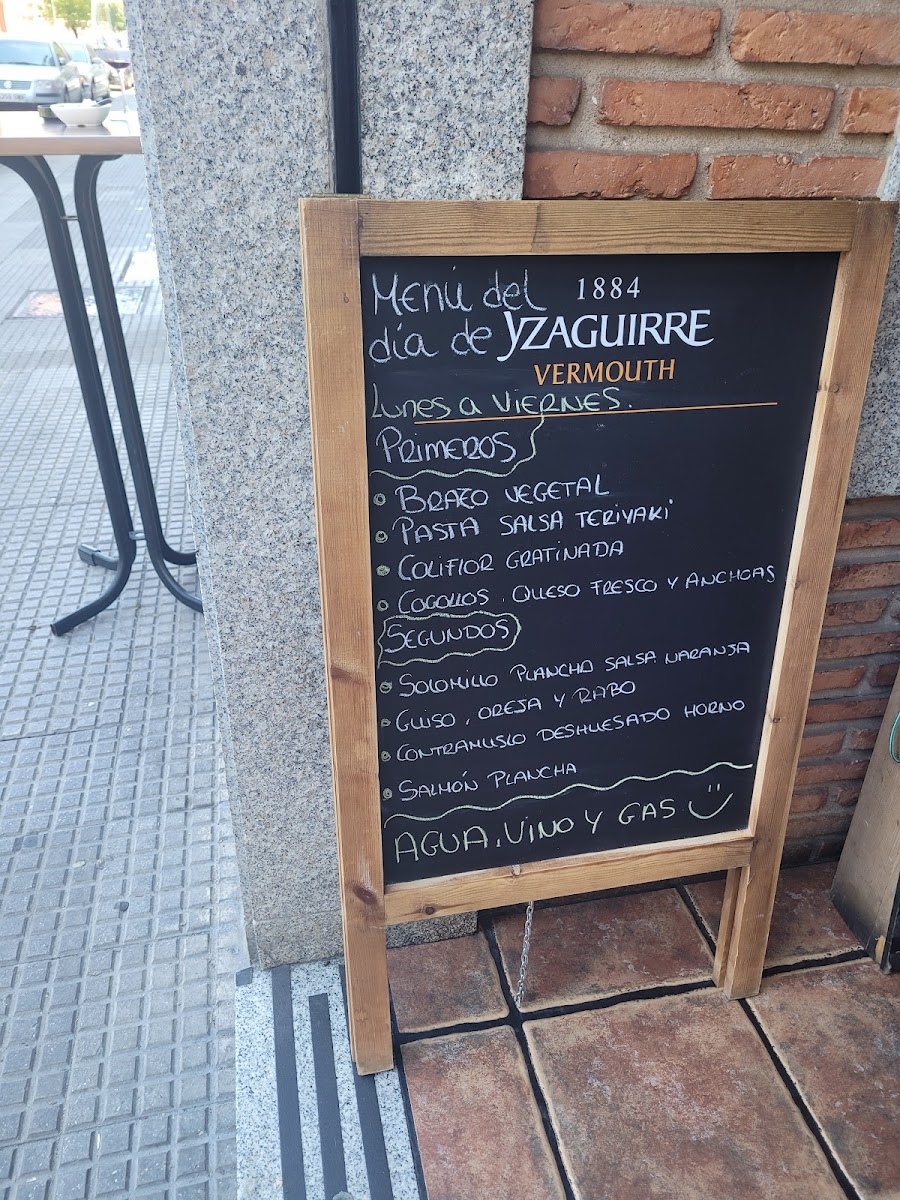 Menú del
día de
1884
YZAGUIRRE
VERMOUTH
Lunes a VIERNES.
PRIMEROS
BRAZO VEGETAL
PASTA SALSA TERIYAKI
COLIFLOR GRATINADA
COGOLLOS, QUESO FRESCO Y ANCHOAS
SEGUNDOS
SOLOMILLO PLANCHA SALSA NARANJA
GUISO, OREJA Y RABO
CONTRAMUSLO DESHUESADO HORNO
SALMÓN PLANCHA
AGUA, VINO Y GAS